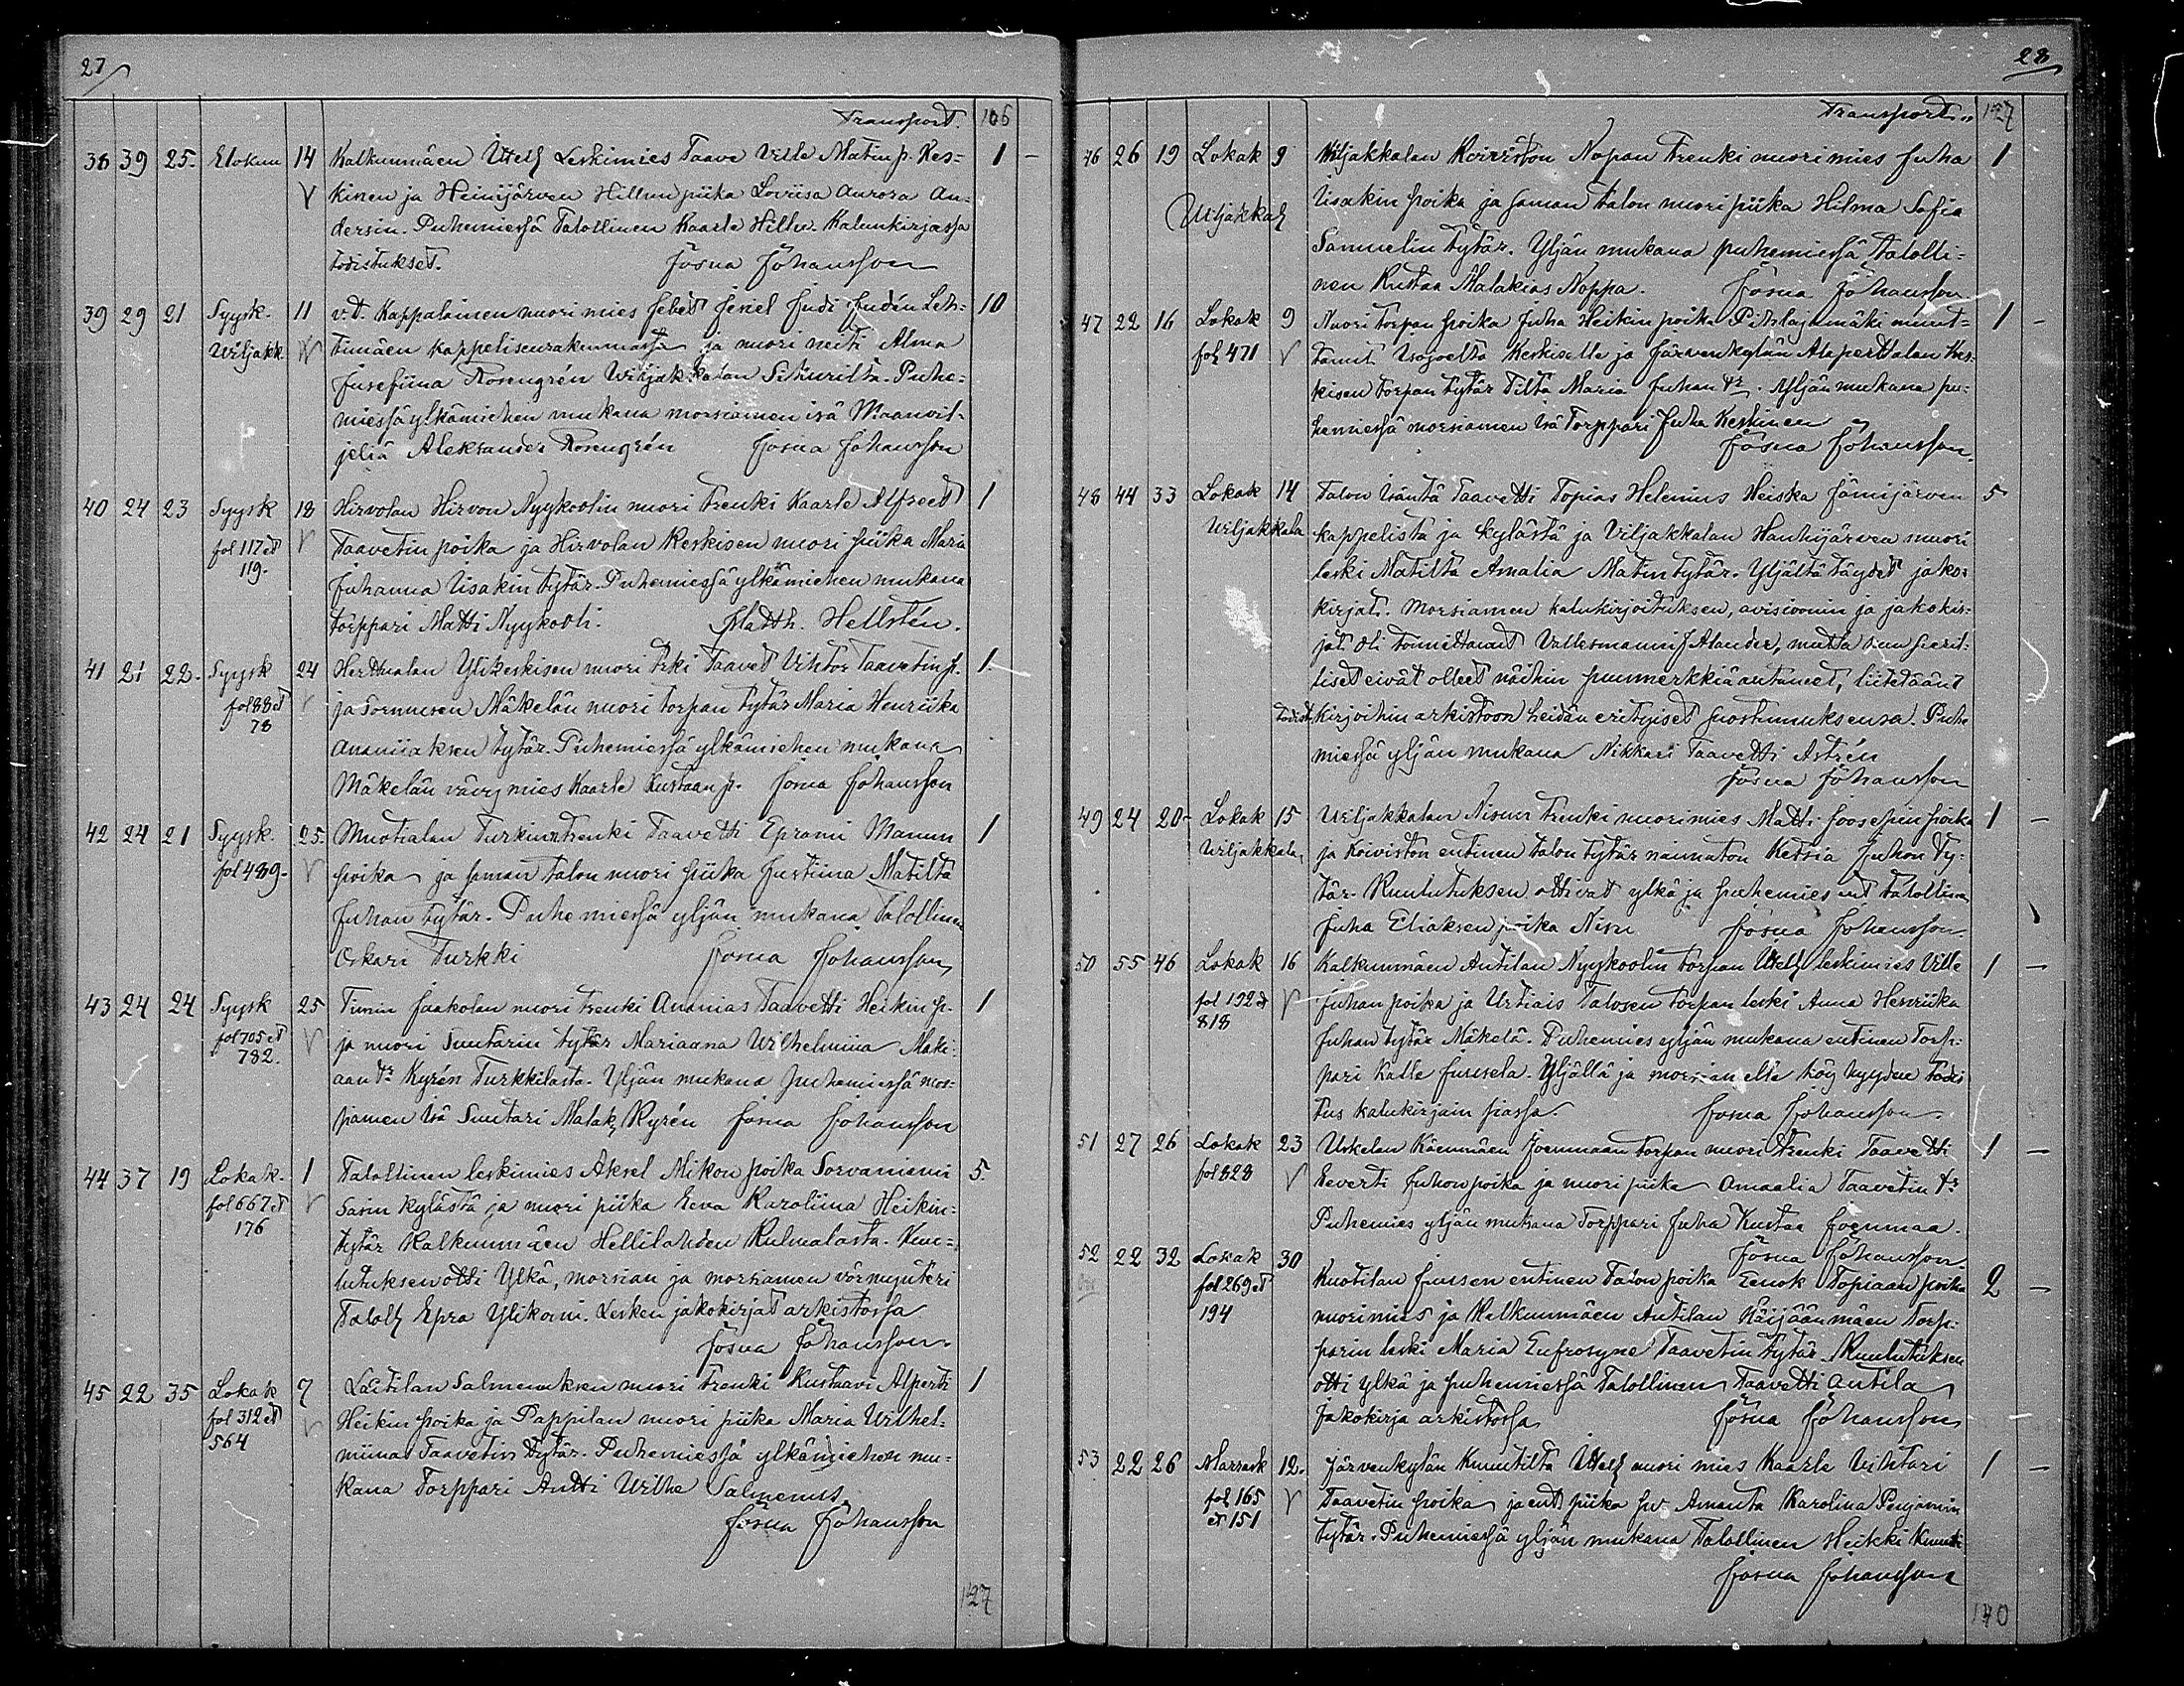 27
Transport. 106
38 39 25. Elokuu 14 Kalkunmäen Ittell Leskimies Taave Ville Matin p. Kes= 1 –
kinen ja Heinijärven Hillun piika Loviisa Aurora An=
dersin. Puhemiessä Talollinen Kaarle Hillu. Kalunkirjassa
todistukset. Josua Johansson
39 29 21 Syysk. 11 v.t. Kappalainen nuori mies Judén Leh= 10
Wiljakk. timäen kappeliseurakunnassa ja nuori neiti Alma
Jusefiina Rosengrén Wiljakkalan Puhe=
miessä ylkämiehen mukana morsiamen isä Maanvil=
jeliä Aleksander Rosengrén Josua Johansson
40 24 23 Syysk 18 Hirvolan Hirvon Nyykoolin nuori trenki Kaarle Alfreet 1
fol 117 et Taavetin poika ja Hirvolan Keskisen nuori piika Maria
119. Juhanna Iisakin tytär. Puhemiessä ylkämiehen mukana
torppari Matti Nyykooli. Matth. Hellstén.
41 21 22. Syysk 24 Herttualan Ylikeskisen nuori trki Taavet Vihtor Taavetin p. 1.
fol 88 et ja Sormusen Mäkelän nuori torpan tytär Maria Henriika
78 Ananiiaksen tytär. Puhemiessä ylkämiehen mukana
Mäkelän vävy mies Kaarle Kustaan p. Josua Johansson
42 24 21 Syysk. 25. Muotialan Turkin trenki Taavetti Eprami Manun 1
fol 489. poika ja saman talon nuori piika Justiina Matilta
Juhan tytär. Puhemiessä yljän mukana Talollinen
Oskari Turkki Josua Johansson
43 24 24 Syysk 25 Timin Jaakolan nuori trenki Ananias Taavetti Heikin p. 1
fol 705 et ja nuori Suutarin tytär Mariaana Wilhelmiina Maki=
782. aan tr Kyrén Turkkilasta. Yljän mukana Puhemiessä mor=
siamen isä Suutari Malak Kyrén Josua Johansson
44 37 19 Lokak. 1 Talollinen leskimies Aksel Mikon poika Sorvaniemi 5.
fol 667 et Sarin kylästä ja nuori piika Eeva Karoliina Heikin=
176 tytär Kalkunmäen Hellilahden Kulmalasta. Kuu=
lutuksen otti Ylkä, morsian ja morsiamen vörmynteri
Talol Epra Ylikorri. Lesken jakokirjat arkistossa
Josua Johansson.
45 22 35 Lokak 7 Laitilan Salmenuksen nuori trenki Kustaavi Alpertti 1
fol 312 et Heikin poika ja Pappilan nuori piika Maria Wilhel=
564 miina Taavetin tytär. Puhemiessä ylkämiehen mu=
kana Torppari Antti Wilhe Salmenus.
Josua Johansson
127
28
Transport. 127
46 26 19 Lokak 9 Wiljakkalan Koiviston Nopan trenki nuori mies Juha 1
Wiljakkal Iisakin poika ja saman talon nuori piika Hilma Sofia
Samuelin tytär. Yljän mukana puhemiessä Talolli=
nen Kustaa Malakias Noppa. Josua Johansson
47 22 16 Lokak 9 Nuori torpan poika Juha Heikin poika muut= 1 –
fol 471 tanut keskiselle ja Järvenkylän Alaperttulan Kes=
kisen torpan tytär Tilta Maria Juhan tr. Yljän mukana pu=
hemiessä morsiamen isä Torppari Juha Keskinen
Josua Johansson.
48 44 33 Lokak 14 Talon isäntä Taavetti Topias Helenius Heiska Jämijärven 5
Wiljakkala kappelista ja kylästä ja Viljakkalan Hanhijärven nuori
leski Matilta Amalia Matin tytär. Yljältä täydet jako=
kirjat. Morsiamen kalukirjoituksen, avisioonin ja jakokir=
jat oli toimittanut Vallesmanni Alander, mutta kun peril=
liset eivät olleet näihin puumerkkiä antaneet, liitetään
todist. kirjoihin arkistoon heidän erityiset suostumuksensa. Puhe
miessä yljän mukana Nikkari Taavetti Astrén
Josua Johansson
49 24 20 Lokak 15 Wiljakkalan Nisun trenki nuori mies Matti Joosepin poika 1 –
Wiljakkala ja Koiviston entinen talon tytär naimaton Ketsia Juhon ty=
tär. Kuulutuksen ottivat ylkä ja puhemies ent talollinen
Juha Eliaksen poika Nisu Josua Johansson.
50 55 46 Lokak 16 Kalkunmäen Antilan Nyykoolin torpan Ittell leskimies Ville 1 –
fol 192 et Juhan poika ja Urtiais Talosen torpan leski Anna Henriika
818 Juhan tytär Mäkelä. Puhemies yljän mukana entinen Torp=
pari Kalle Jussela. Yljällä ja morsianella hög kyyden todis
tus kalukirjain siassa. Josua Johansson.
51 27 26 Lokak 23 Uskelan Käenmäen Joenmaan torpan nuori trenki Taavetti 1 –
fol 828 Eevertti Juhon poika ja nuori piika Amaalia Taavetin tr
Puhemies yljän mukana Torppari Juha Kustaa Joenmaa.
Josua Johansson.
52 22 32 Lokak 30 Kuotilan Jussen entinen Talon poika Eenok Topiaan poika 2 –
fol 269 et nuori mies ja Kalkunmäen Antilan Käijäänmäen Torp=
194 parin leski Maria Eufrosyne Taavetin tytär. Kuulutuksen
otti ylkä ja puhemiessä Talollinen Taavetti Antila
Jakokirja arkistossa Josua Johansson
53 22 26 Marrask 12. Järvenkylän Knuutilta Ittell nuori mies Kaarle Vihtori 1 –
fol 165 Taavetin poika ja ent piika Amanta Karolina Penjamin
et 151 tytär. Puhemiessä yljän mukana Talollinen Heikki Knuuti
Josua Johansson
140